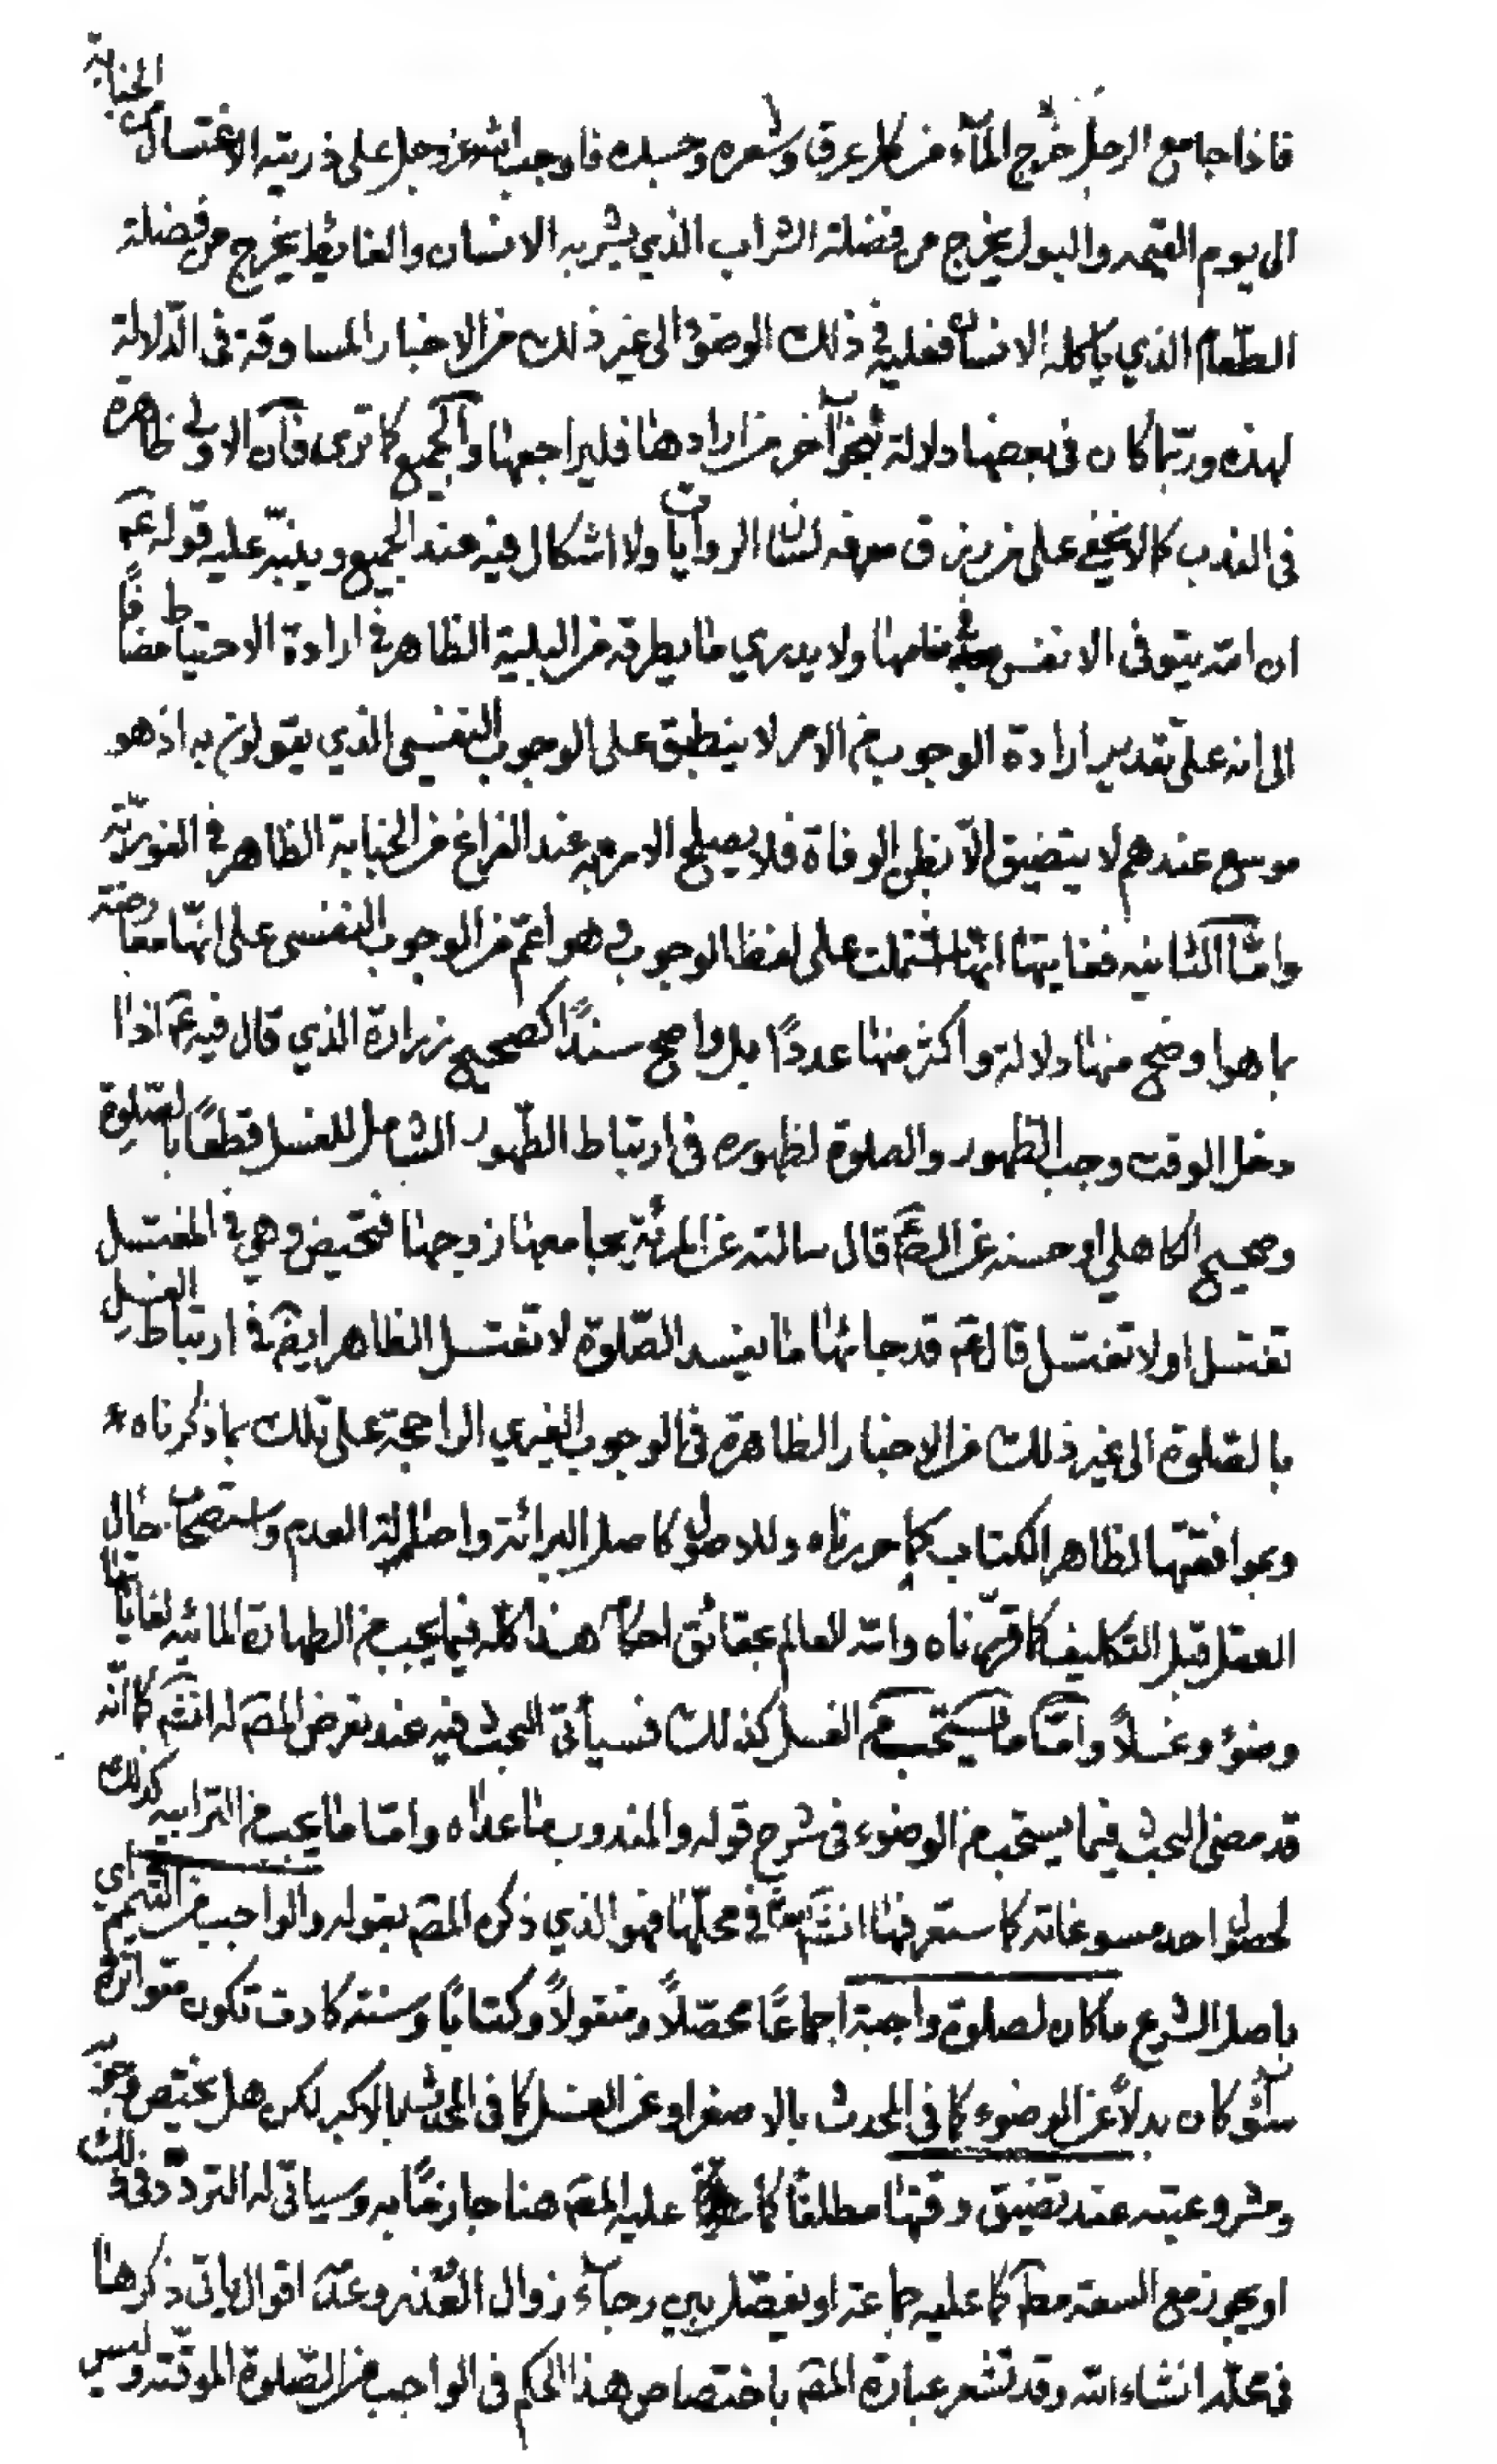 فاذا جامع الرجل خرج المآء من كل عرق وشعره وجسده فاوجب الله عز وجل على ذريته الاغتسال من الجنابة
الى يوم القيمه والبول يخرج من فضلة الشراب الذي يشربه الانسان والغائط يخرج من فضلة
الطّعام الذي ياكله الانسان فعليه في ذلك الوضوء الى غير ذلك من الاخبار المساوقة في الدّلالة
لهذه وربّما كان في بعضها دلالة بنحو آخر من ارادها فليراجعها والجميع كما ترى فان الاولى ظاهرة
في الندب كما لا يخفى على من رزق معرفه لسان الروايات ولا اشكال فيه عند الجميع وينبّه عليه قوله عم
ان الله يتوفى الانفس في منامها ولا يدري ما يطرقه من البلية الظاهر في ارادة الاحتياط مضافًا
الى انه على تقدير ارادة الوجوب من الامر لا ينطبق على الوجوب النفسي الذي يقولون به اذ هو
موسع عندهم لا يتضيق الّا بظن الوفاة فلا يصلح الامر به عند الفراغ من الجنابة الظاهر في الفوريّة
وامّا الثانيه فغايتها انّها اشتملت على لفظ الوجوب وهو اعمّ من الوجوب النفسي على انّها معارضة
بما هو اوضح منها دلالة واكثر منها عددًا بل واصح سندًا كصحيح زرارة الذي قال فيه عم اذا
دخل الوقت وجب الطهور والصلوة لظهوره في ارتباط الطّهور الشامل للغسل قطعًا بالصّلوة
وصحيح الكاهلي او حسنه عن الصم قال سالته عن المرئة يجامعها زوجها فتحيض وهي في المغتسل
تغتسل او لا تغتسل قال عم قد جائها ما يفسد الصّلوة لا تغتسل الظاهر ايضم في ارتباط الغسل
بالصّلوة الى غير ذلك من الاخبار الظاهرة في الوجوب الغيري الراجحة على تلك بما ذكرناه *
وبموافقتها لظاهر الكتاب كما حررناه وللاصول كاصل البرائة واصالة العدم واستصحاب حال
العقل قبل التكليف كما قرّرناه والله العالم بحقائق احكامه هذا كله فيما يجب من الطهارة المائيه لغاياتها
وضوء وغسلًا وامّا ما يستحب من الغسل كذلك فسيأتي البحث فيه عند تعرض المصم له انشم كما انّه
قد مضى البحث فيما يستحب من الوضوء في شرح قوله والمندوب ما عداه وامّا ما يجب من الترابيه كذلك
لحصول احد مسوغاته كما ستعرفها انشم في محلّها فهو الذي ذكره المصم بقوله والواجب من التيمم اي
باصل الشرع ما كان لصلوة واجبة اجماعًا محصّلًا ومنقولًا وكتابًا وسنته كادت تكون متواترة
سوآء كان بدلًا عن الوضوء كما في المحدث بالاصغر او عن الغسل كما في المحدث بالاكبر لكن هل يختص
ومشروعيته عند تضيق وقتها مطلقًا كما عليه المصم هنا جازمًا به وسياتى له التردّد في ذلك
او يجوز مع السعة مطم كما عليه جماعة او يفصّل بين رجآء زوال العُذر وعدمه اقوال ياتى ذكرها
في محلّه انشاء الله وقد تشعر عبارة المصم باختصاص هذا الحكم في الواجب من الصّلوة الموقّته وليس